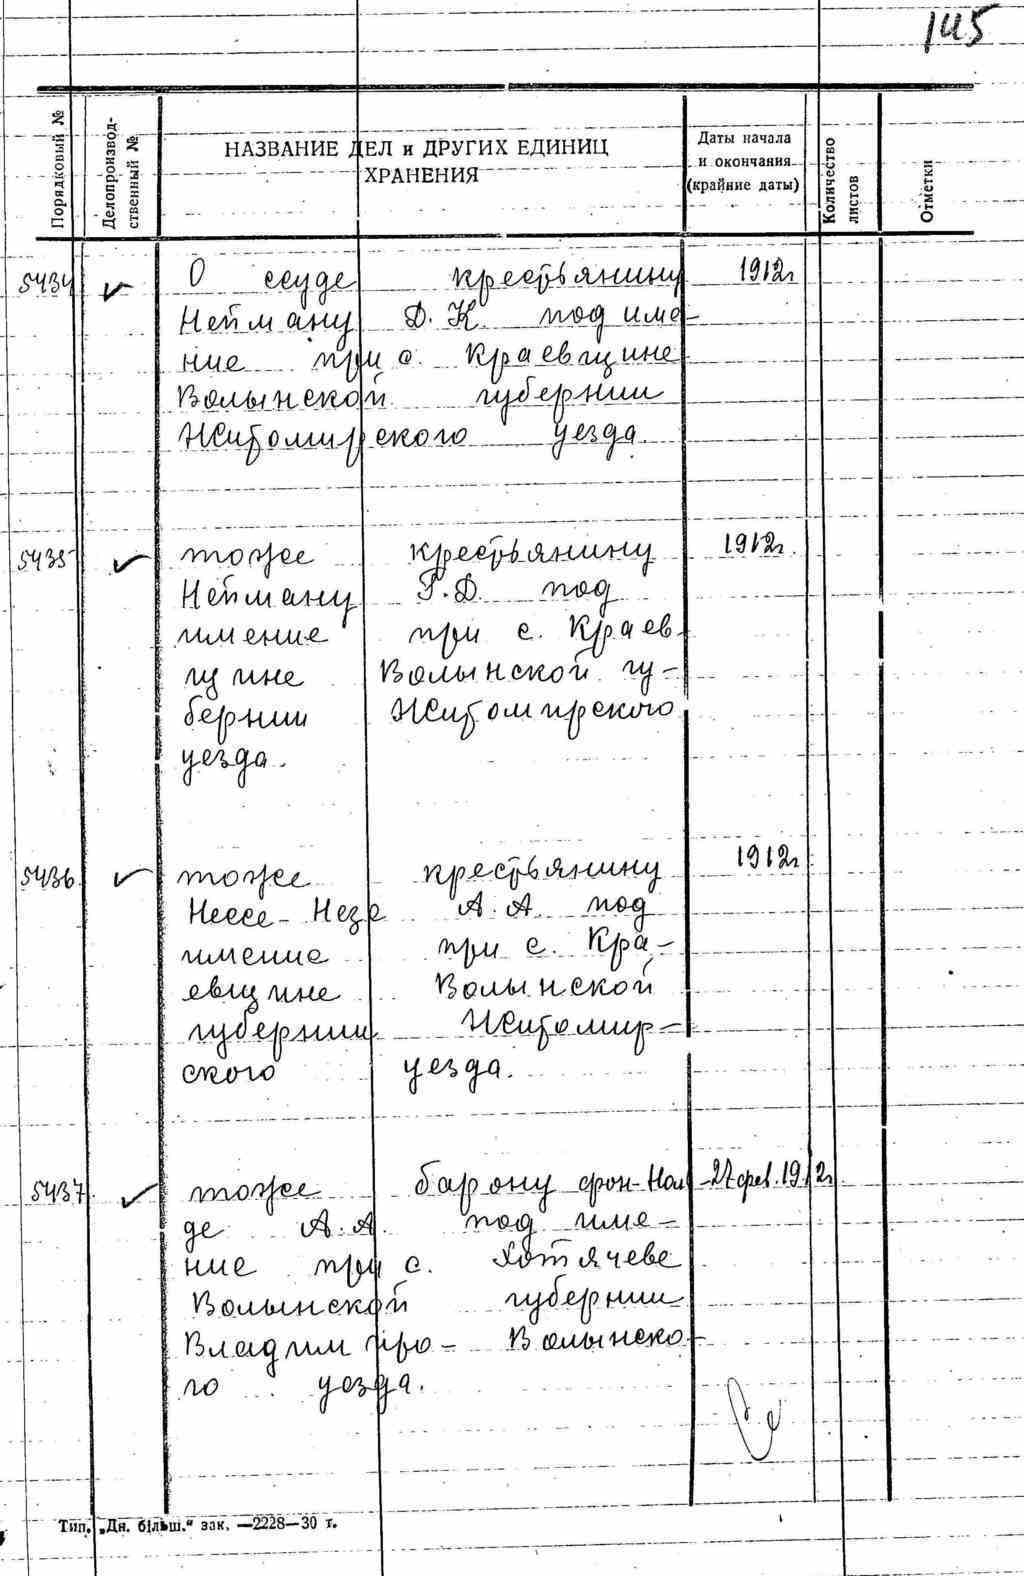 145
Порядковый №
Делопроизвод-
ственный №
НАЗВАНИЕ ДЕЛ и ДРУГИХ ЕДИНИЦ
ХРАНЕНИЯ
Даты начала
и окончания
(крайние даты)
Количество
листов
Отметки
5434 О ссуде крестьянину 1912г
Нейману Д. К. под име-
ние при с. Краевщине
Волынской губернии
Житомирского уезда.
5435 тоже крестьянину 1912г.
Нейману Г. Д. под
имение при с. Краев-
щине Волынской гу-
бернии Житомирского
уезда.
5436 тоже крестьянину 1912г
Нессе-Незе А. А. под
имение при с. Кра-
евщине Волынской
губернии Житомир-
ского уезда.
5437 тоже барону фон-Ноль- 27 фев. 1912г
де А. А. под име-
ние при с. Хотячеве
Волынской губернии
Владимиро- Волынско-
го уезда.
Тип. „Дн. більш.“ зак. —2228—30 т.